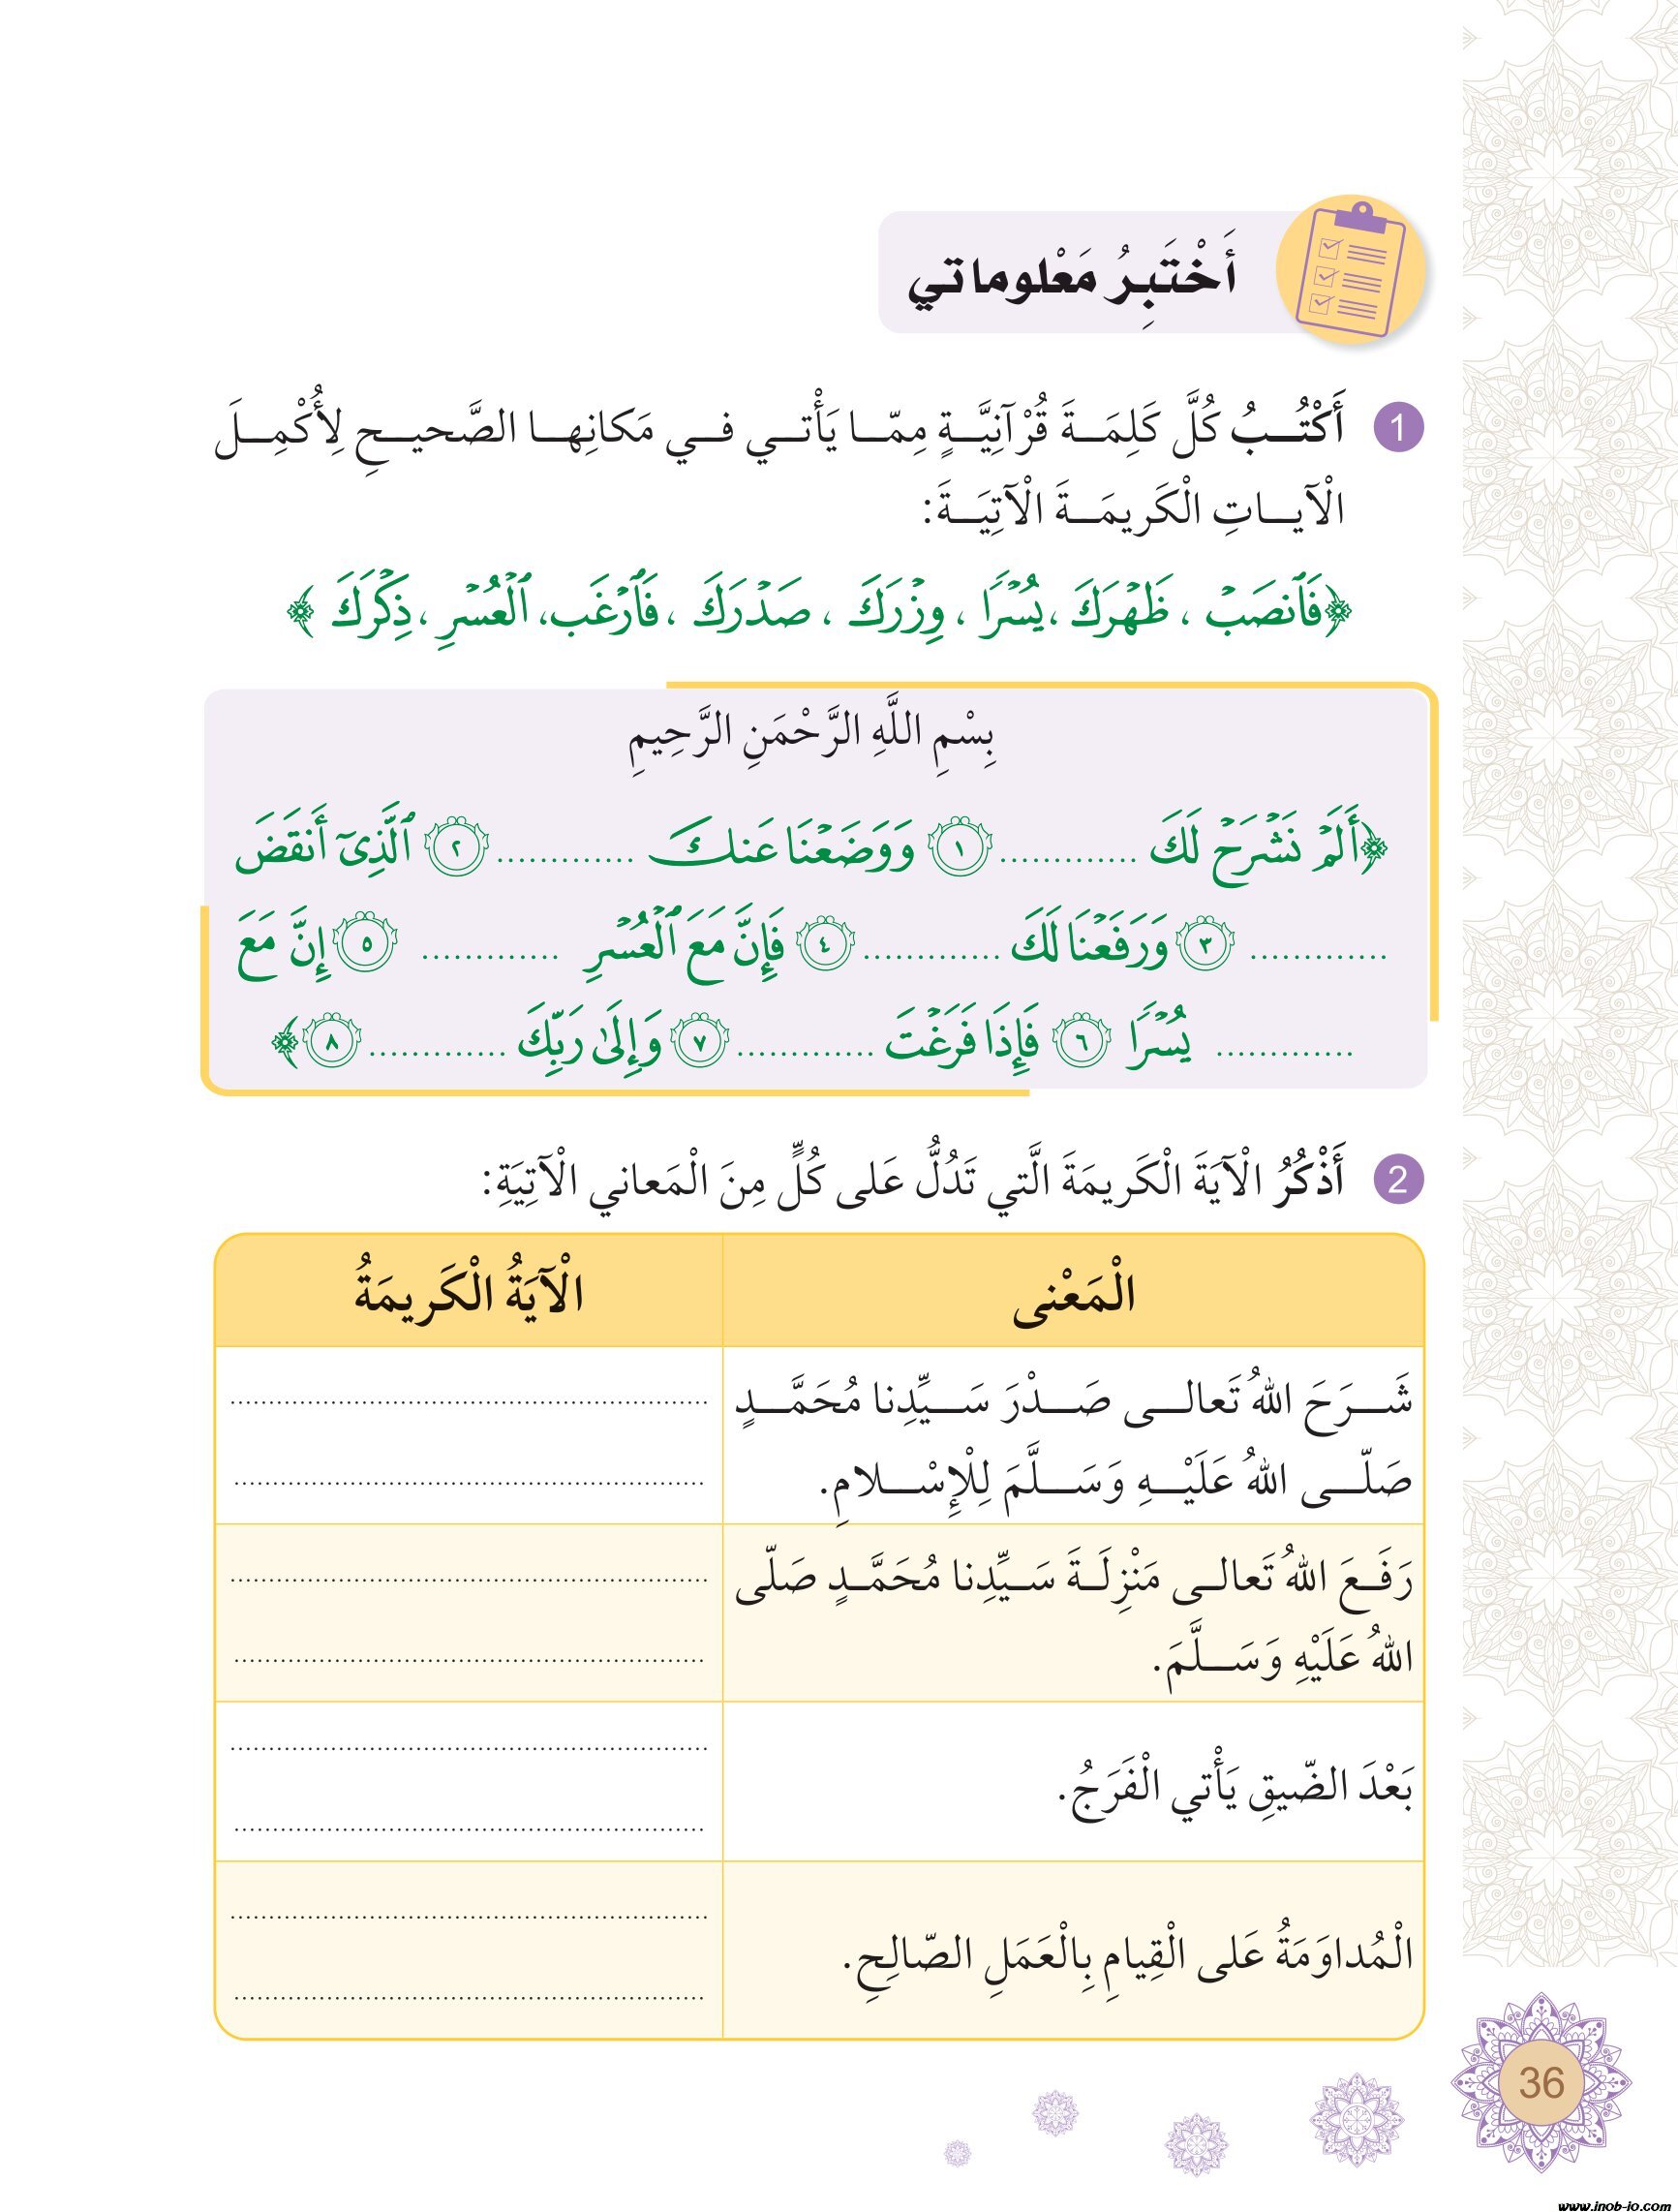 أَخْتَبِرُ مَعْلوماتي
1 أَكْتُـــبُ كُلَّ كَلِمَـــةَ قُرْآنِيَّـــةٍ مِمّـــا يَأْتـــي فـــي مَكانِهـــا الصَّحيـــحِ لِأُكْمِـــلَ
الْآيـــاتِ الْكَريمَـــةَ الْآتِيَـــةَ:
﴿فَٱنصَبۡ ، ظَهۡرَكَ ،يُسۡرًا ، وِزۡرَكَ ، صَدۡرَكَ ، فَٱرۡغَب، ٱلۡعُسۡرِ ، ذِكۡرَكَ ﴾
بِسْمِ اللَّهِ الرَّحْمَنِ الرَّحِيمِ
﴿أَلَمۡ نَشۡرَحۡ لَكَ ............. ١ وَوَضَعۡنَا عَنكَ ............. ٢ ٱلَّذِيٓ أَنقَضَ
............. ٣ وَرَفَعۡنَا لَكَ ............. ٤ فَإِنَّ مَعَ ٱلۡعُسۡرِ ............. ٥ إِنَّ مَعَ
............. يُسۡرًا ٦ فَإِذَا فَرَغۡتَ ............. ٧ وَإِلَىٰ رَبِّكَ ............. ٨﴾
2 أَذْكُرُ الْآيَةَ الْكَريمَةَ الَّتي تَدُلُّ عَلى كُلٍّ مِنَ الْمَعاني الْآتِيَةِ:
الْمَعْنى الْآيَةُ الْكَريمَةُ
شَـــرَحَ اللهُ تَعالـــى صَـــدْرَ سَـــيِّدِنا مُحَمَّـــدٍ
صَلّـــى اللهُ عَلَيْـــهِ وَسَـــلَّمَ لِلْإِسْـــلامِ.
رَفَـــعَ اللهُ تَعالـــى مَنْزِلَـــةَ سَـــيِّدِنا مُحَمَّـــدٍ صَلّى
اللهُ عَلَيْهِ وَسَـــلَّمَ.
بَعْدَ الضّيقِ يَأْتي الْفَرَجُ.
الْمُداوَمَةُ عَلى الْقِيامِ بِالْعَمَلِ الصّالِحِ.
36
www.inob-jo.com